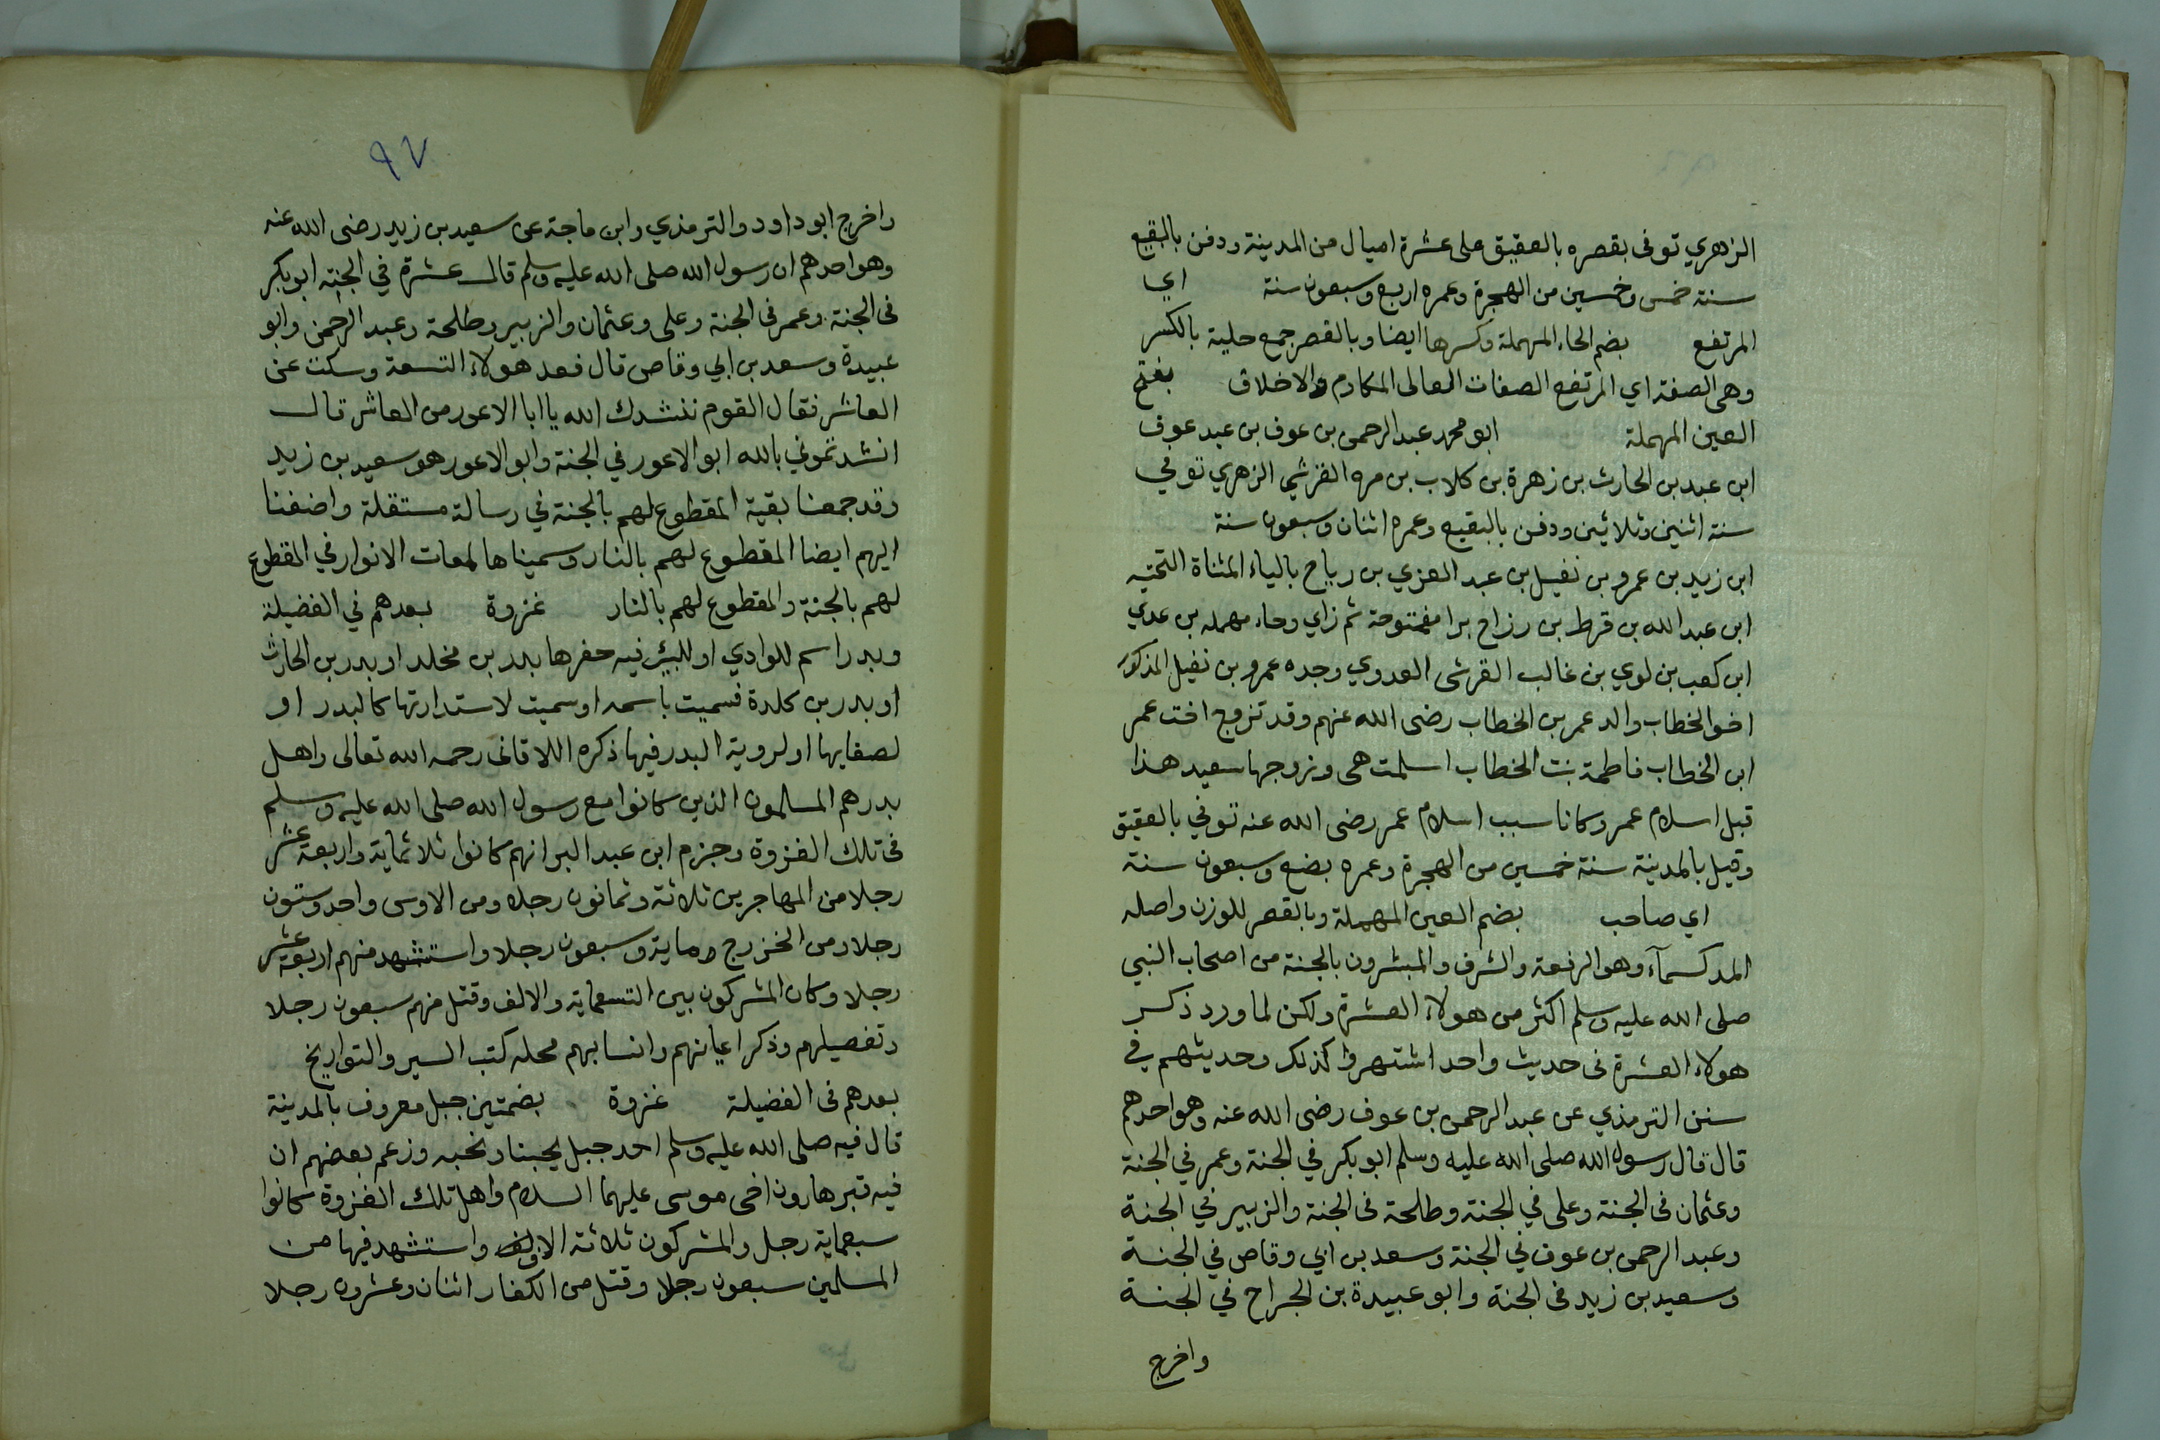 الزهري توفى بقصره بالعقيق على عشرة اميال من المدينة ودفن بالبقيع
سنة خمس وخمسين من الهجرة وعمره اربع وسبعون سنة اي
المرتفع بضم الحاء المهملة وكسرها ايضا وبالقصر جمع حلية بالكسر
وهى الصفة اي المرتفع الصفات العالى المكارم والاخلاق بفتح
العين المهملة ابو محمد عبد الرحمن بن عوف بن عبد عوف
ابن عبد بن الحارث بن زهرة بن كلاب بن مره القرشي الزهري توفي
سنة اثنين وثلاثين ودفن بالبقيع وعمره اثنان وسبعون سنة
ابن زيد بن عمرو بن نفيل بن عبد العزي بن رباح بالياء المثناة التحتيه
ابن عبد الله بن قرط بن رزاح برا مفتوحة ثم زاي وحاء مهمله بن عدي
ابن كعب بن لوي بن غالب القرشى العدوي وجده عمرو بن نفيل المذكور
اخو الخطاب والد عمر بن الخطاب رضى الله عنهم وقد تزوج اخت عمر
ابن الخطاب فاطمة بنت الخطاب اسلمت هى وزوجها سعيد هذا
قبل اسلام عمر وكانا سبب اسلام عمر رضى الله عنه توفي بالعقيق
وقيل بالمدينة سنة خمسين من الهجرة وعمره بضع وسبعون سنة
اي صاحب بضم العين المهملة وبالقصر للوزن واصله
المد كسمآء وهو الرفعة والشرف والمبشرون بالجنة من اصحاب النبي
صلى الله عليه وسلم اكثر من هولاء العشرة ولكن لما ورد ذكر
هولاء العشرة فى حديث واحد اشتهروا كذلك وحديثهم في
سنن الترمذي عن عبد الرحمن بن عوف رضى الله عنه وهو احدهم
قال قال رسول الله صلى الله عليه وسلم ابو بكر في الجنة وعمر في الجنة
وعثمان فى الجنة وعلى في الجنة وطلحة فى الجنة والزبير في الجنة
وعبد الرحمن بن عوف في الجنة وسعد بن ابي وقاص في الجنة
وسعيد بن زيد فى الجنة وابو عبيدة بن الجراح في الجنة
واخرج
٩٧
واخرج ابو داود والترمذي وابن ماجة عن سعيد بن زيد رضى الله عنه
وهو احدهم ان رسول الله صلى الله عليه وسلم قال عشرة في الجنة ابو بكر
فى الجنة وعمر فى الجنة وعلى وعثمان والزبير وطلحة وعبد الرحمن وابو
عبيدة وسعد بن ابي وقاص قال فعد هولاء التسعة وسكت عن
العاشر فقال القوم ننشدك الله يا ابا الاعور من العاشر قال
انشدتموني بالله ابو الاعور في الجنة وابو الاعور هو سعيد بن زيد
وقد جمعنا بقية المقطوع لهم بالجنة في رسالة مستقلة واضفنا
اليهم ايضا المقطوع لهم بالنار وسميناها لمعات الانوار في المقطوع
لهم بالجنة والمقطوع لهم بالنار غزوة بعدهم في الفضيلة
وبدر اسم للوادي او للبئر فيه حفرها بدر بن مخلد او بدر بن الحارث
او بدر بن كلدة فسميت باسمه او سميت لاستدارتها كالبدر او
لصفايها او لروية البدر فيها ذكره اللاقانى رحمه الله تعالى واهل
بدر هم المسلمون الذين كانوا مع رسول الله صلى الله عليه وسلم
فى تلك الغزوة وجزم ابن عبد البر انهم كانوا ثلاثماية واربعة عشر
رجلا من المهاجرين ثلاثة وثمانون رجلا ومن الاوسى واحد وستون
رجلا ومن الخزرج وماية وسبعون رجلا واستشهد منهم اربعة عشر
رجلا وكان المشركون بين التسعماية والالف وقتل منهم سبعون رجلا
وتفصيلهم وذكر اعيانهم وانسابهم محله كتب السير والتواريخ
بعدهم فى الفضيلة غزوة بضمتين جبل معروف بالمدينة
قال فيه صلى الله عليه وسلم احد جبل يحبنا ونحبه وزعم بعضهم ان
فيه قبر هارون اخى موسى عليهما السلام واهل تلك الغزوة كانوا
سبعماية رجل والمشركون ثلاثة الاف واستشهد فيها من
المسلمين سبعون رجلا وقتل من الكفار اثنان وعشرون رجلا